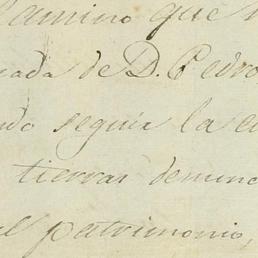 camino que
de D. Pedro
seguir la
tierras denunc
patrimonio,